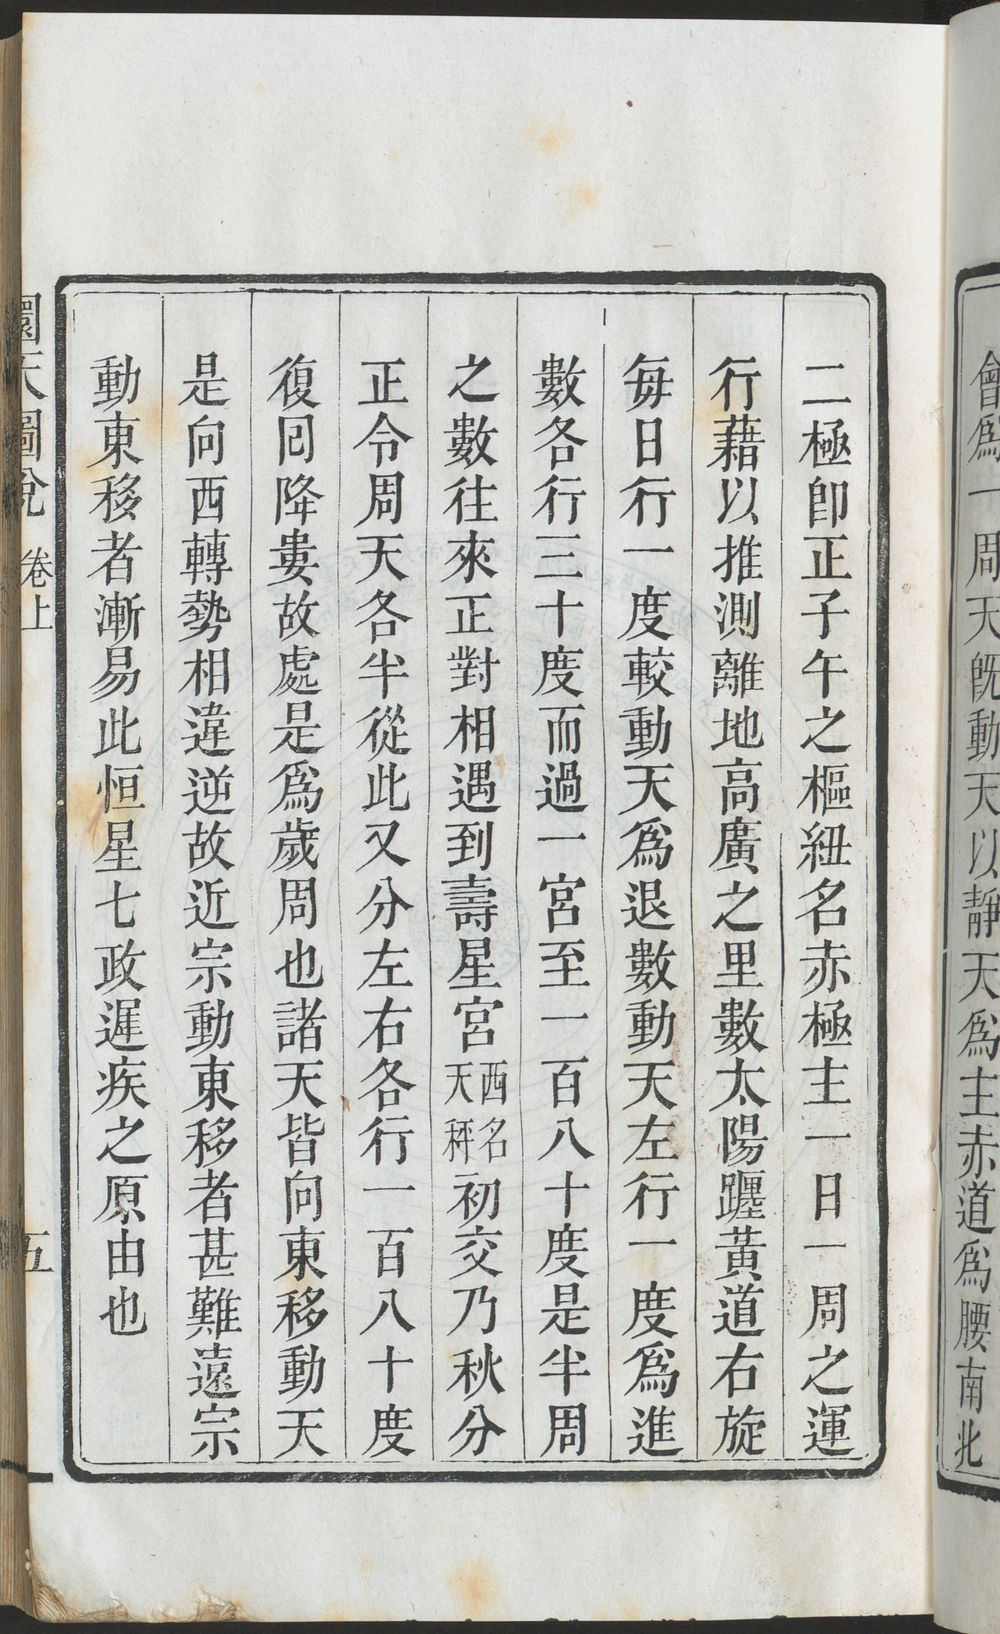 會爲一周天旣動天以靜天爲主赤道爲腰南北
二極卽正子午之樞紐名赤極主一日一周之運
行藉以推測離地高廣之里數太陽躔黃道右旋
每日行一度較動天爲退數動天左行一度爲進
數各行三十度而過一宮至一百八十度是半周
之數往來正對相遇到壽星宮西名天秤初交乃秋分
正令周天各半從此又分左右各行一百八十度
復囘降婁故處是爲歲周也諸天皆向東移動天
是向西轉勢相違逆故近宗動東移者甚難遠宗
動東移者漸易此恒星七政遲疾之原由也
圜天圖說 卷上 五